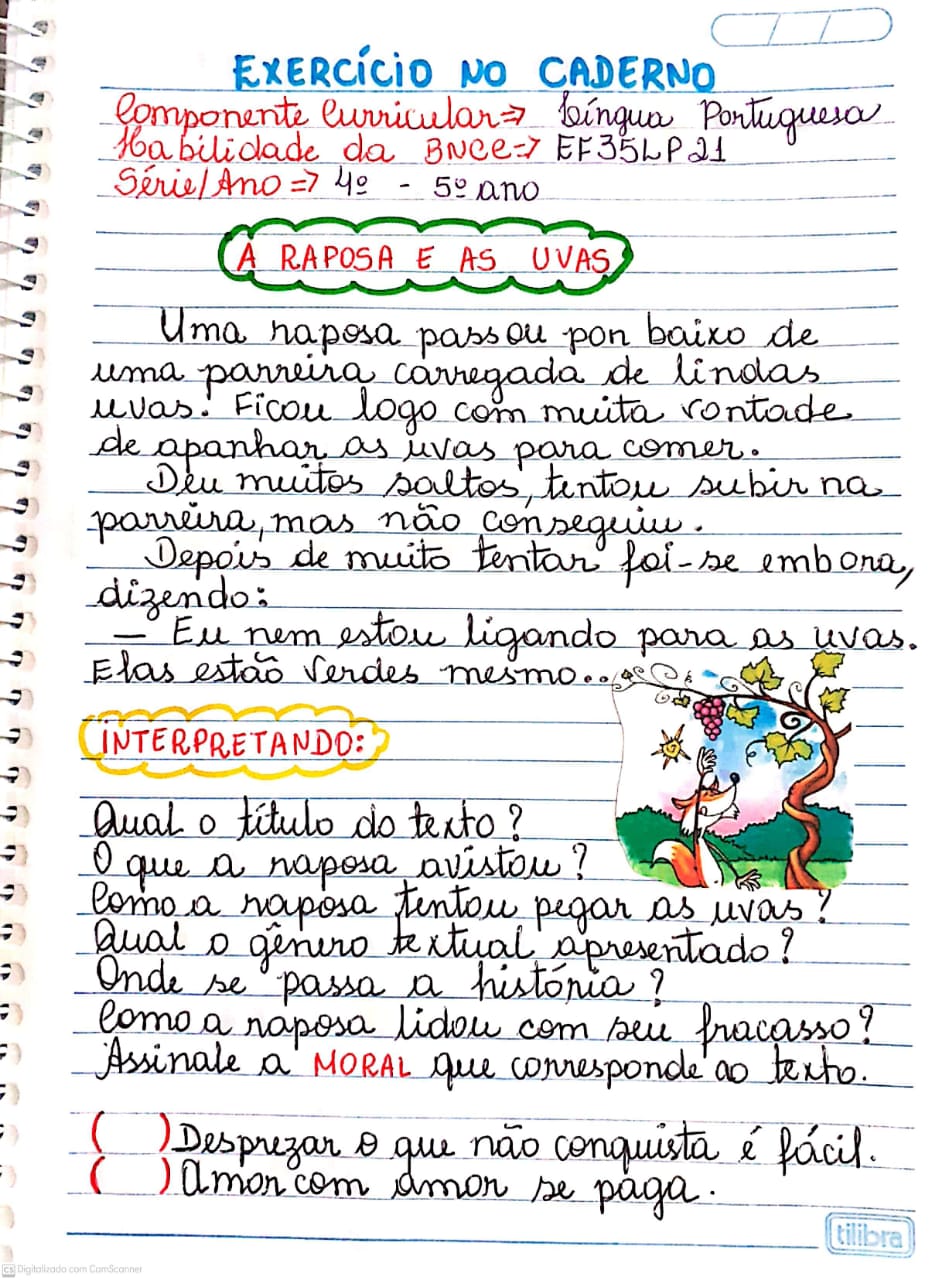 EXERCÍCIO NO CADERNO
Componente Curricular=> Língua Portuguesa
Habilidade da BNCC=> EF35LP21
Série/Ano => 4º - 5º ano
A RAPOSA E AS UVAS
Uma raposa passou por baixo de
uma parreira carregada de lindas
uvas. Ficou logo com muita vontade
de apanhar as uvas para comer.
Deu muitos saltos, tentou subir na
parreira, mas não conseguiu.
Depois de muito tentar foi-se embora,
dizendo:
— Eu nem estou ligando para as uvas.
Elas estão verdes mesmo...
INTERPRETANDO:
Qual o título do texto?
O que a raposa avistou?
Como a raposa tentou pegar as uvas?
Qual o gênero textual apresentado?
Onde se passa a história?
Como a raposa lidou com seu fracasso?
Assinale a MORAL que corresponde ao texto.
( ) Desprezar o que não conquista é fácil.
( ) Amor com amor se paga.
tilibra
CS Digitalizado com CamScanner